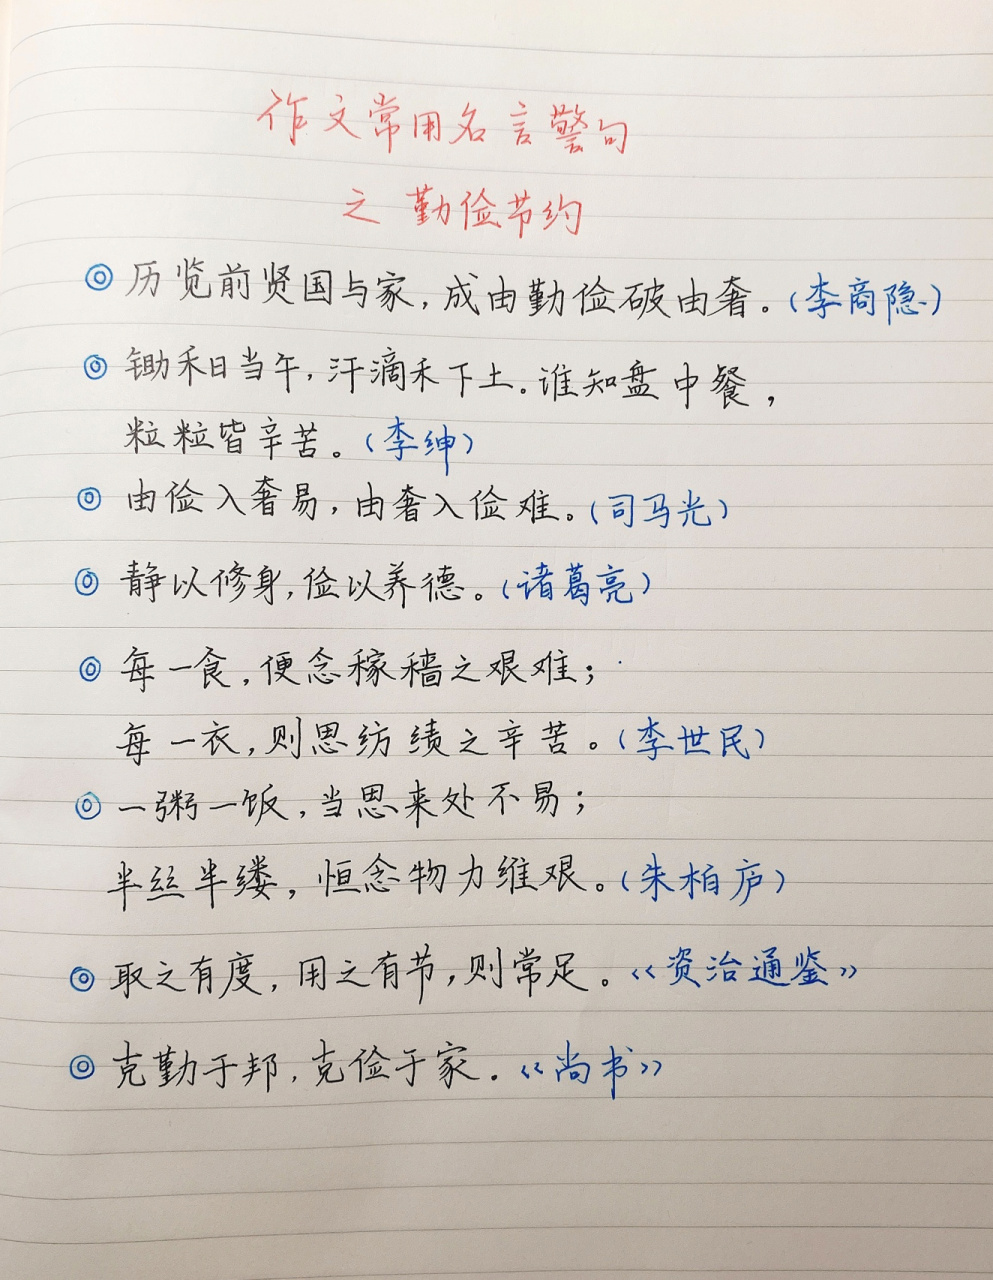 作文常用名言警句
之勤俭节约
◎历览前贤国与家,成由勤俭破由奢。(李商隐)
◎锄禾日当午,汗滴禾下土。谁知盘中餐,
粒粒皆辛苦。(李绅)
◎由俭入奢易,由奢入俭难。(司马光)
◎静以修身,俭以养德。(诸葛亮)
◎每一食,便念稼穑之艰难;
每一衣,则思纺绩之辛苦。(李世民)
◎一粥一饭,当思来处不易;
半丝半缕,恒念物力维艰。(朱柏庐)
◎取之有度,用之有节,则常足。《资治通鉴》
◎克勤于邦,克俭于家。《尚书》